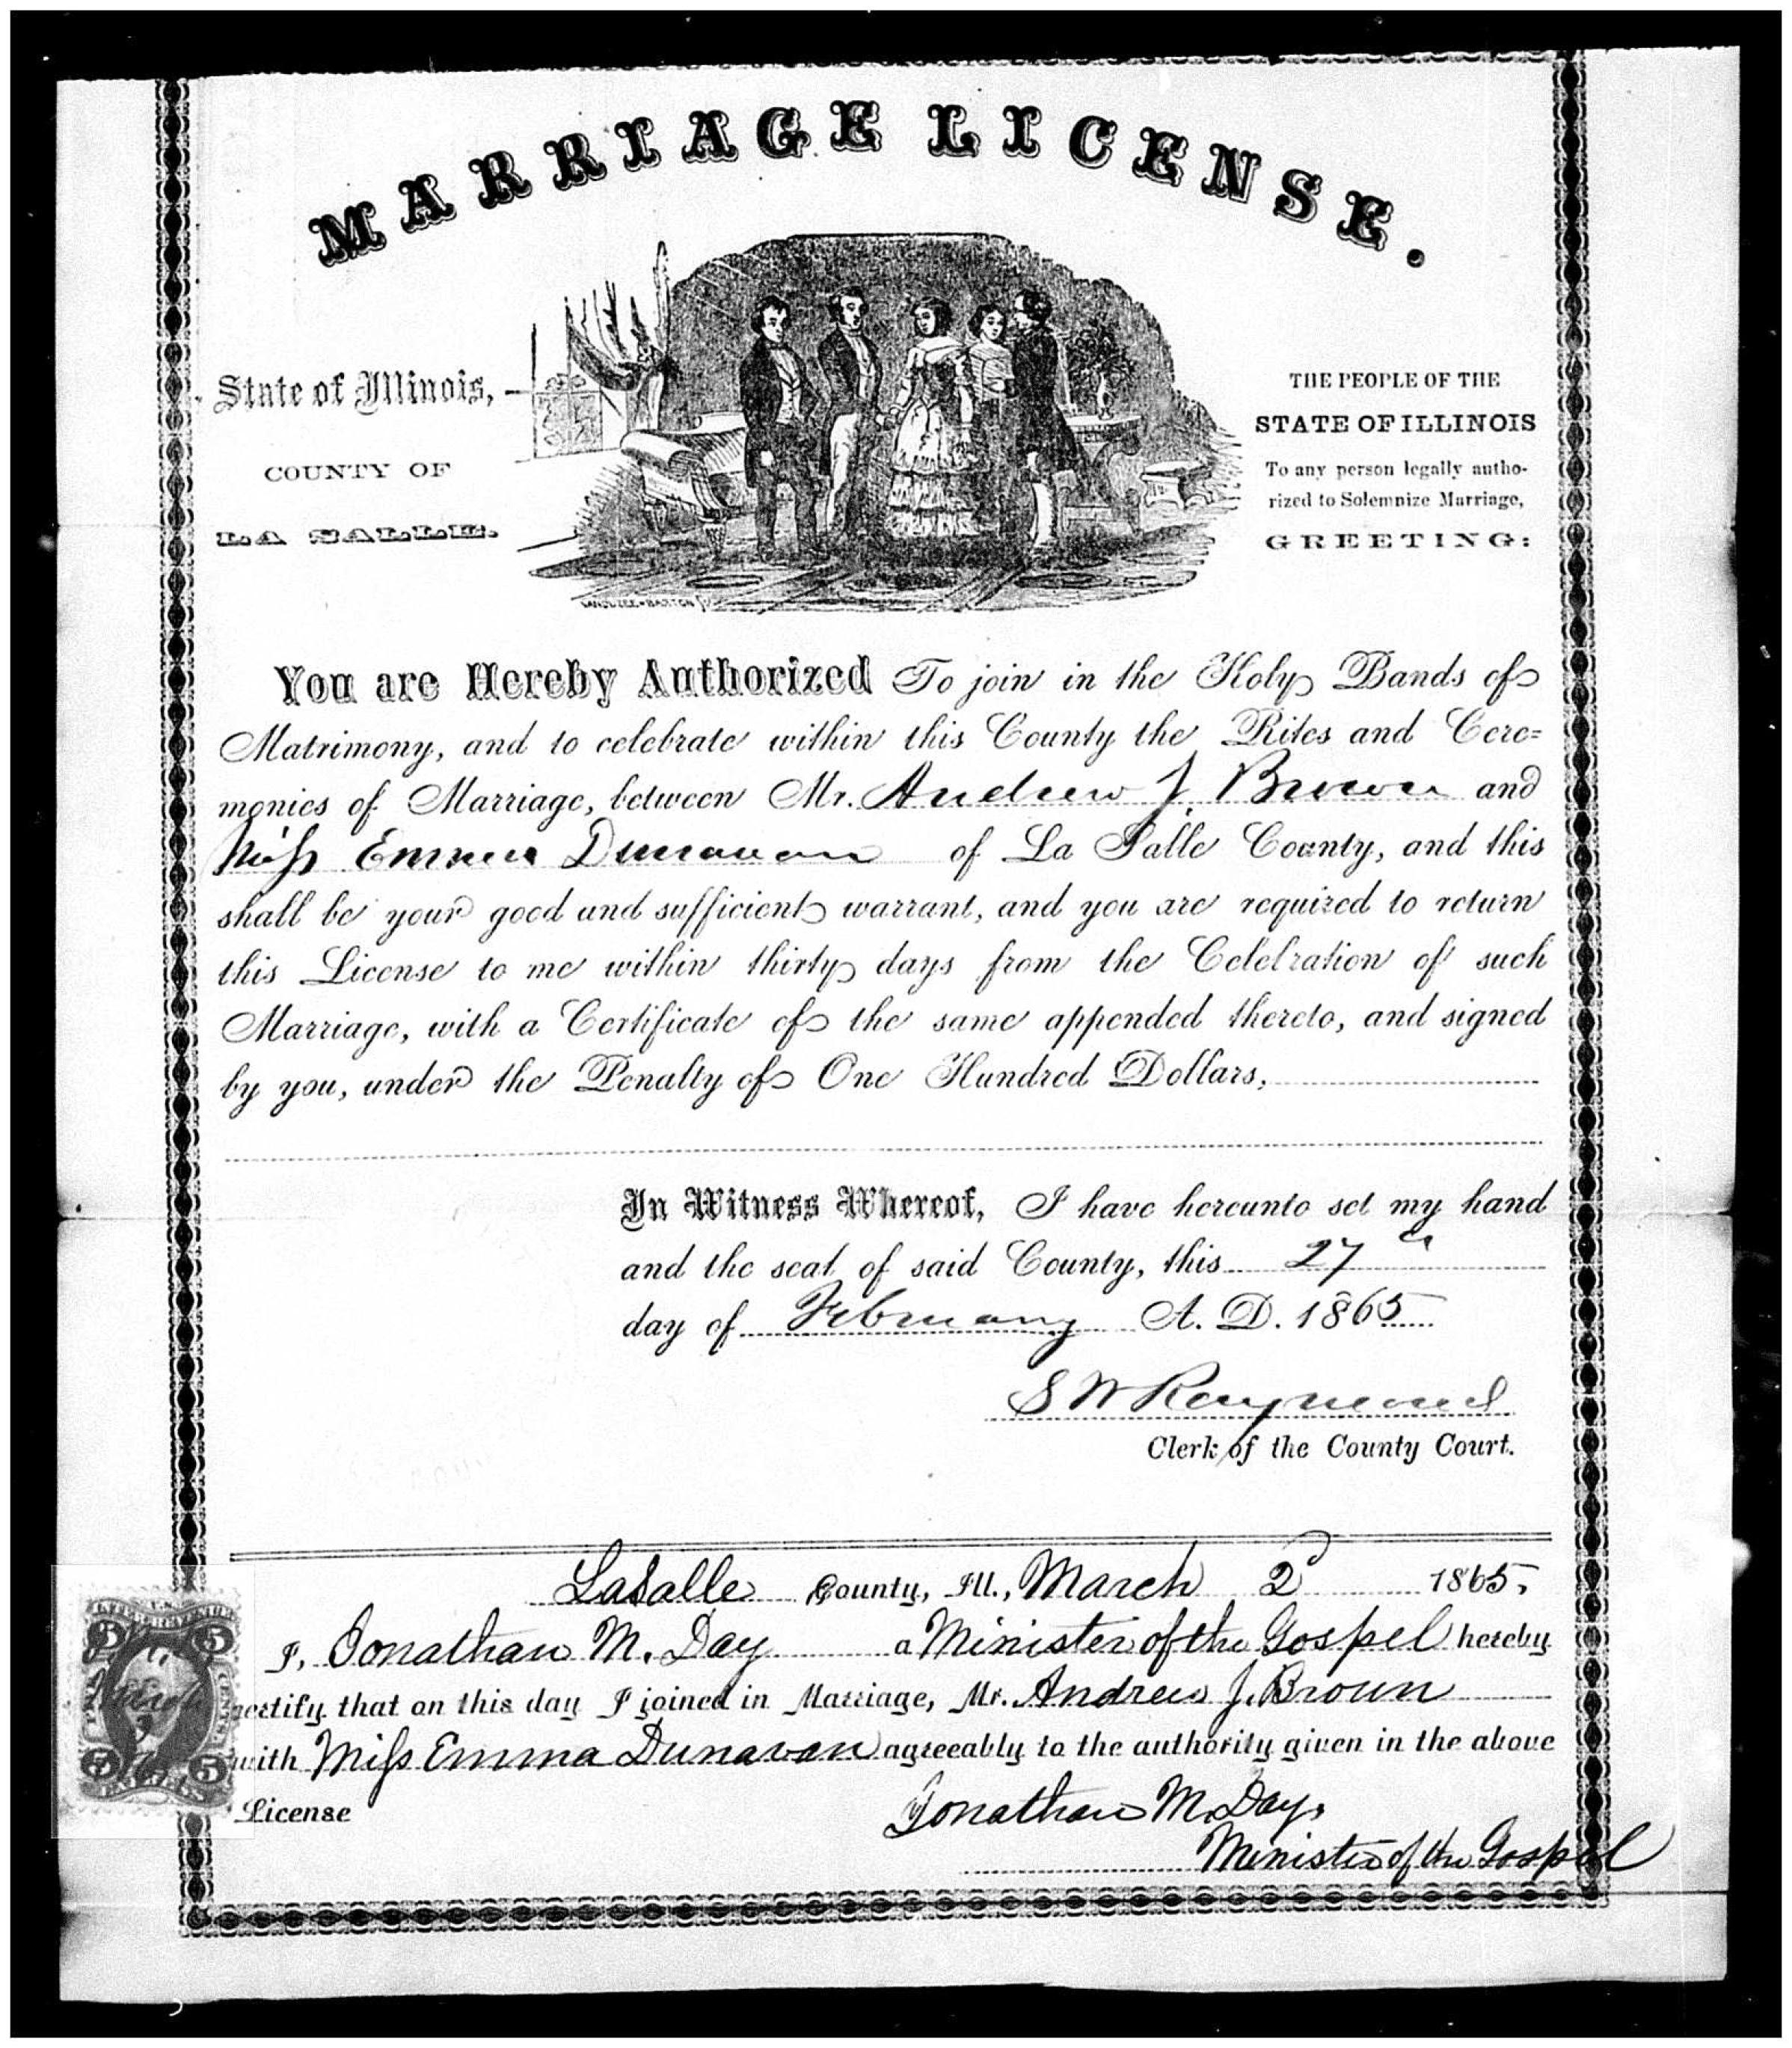 MARRIAGE LICENSE.
State of Illinois,
COUNTY OF
LA SALLE.
THE PEOPLE OF THE
STATE OF ILLINOIS
To any person legally autho-
rized to Solemnize Marriage,
GREETING:
You are Hereby Authorized To join in the Holy Bands of
Matrimony, and to celebrate within this County the Rites and Cere=
monies of Marriage, between Mr. Andrew J. Brown and
Miss Emma Dunavan of La Salle County, and this
shall be your good and sufficient warrant, and you are required to return
this License to me within thirty days from the Celebration of such
Marriage, with a Certificate of the same appended thereto, and signed
by you, under the Penalty of One Hundred Dollars.
In Witness Whereof, I have hereunto set my hand
and the seal of said County, this 27th
day of February A. D. 1865
S W Raymond
Clerk of the County Court.
LaSalle County, Ill., March 2d 1865.
I, Jonathan M. Day a Minister of the Gospel hereby
certify that on this day I joined in Marriage, Mr. Andrew J. Brown
with Miss Emma Dunavan agreeably to the authority given in the above
License
Jonathan M. Day,
Minister of the Gospel
U.S.
INTER. REVENUE
5 5
CENTS
5 5